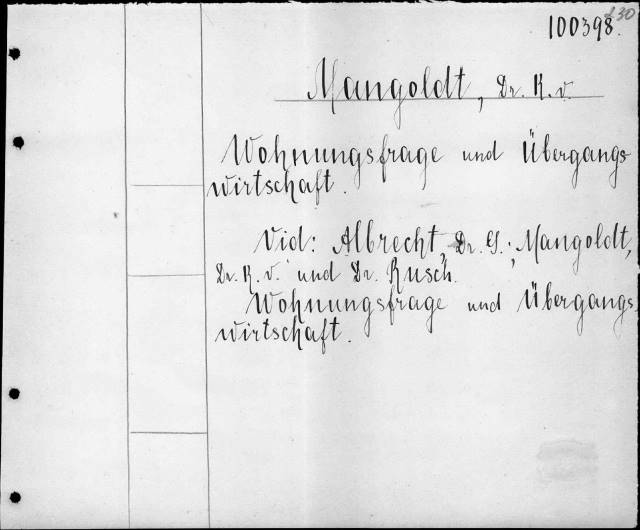 100398.
Mangoldt, Dr. K. v.
Wohnungsfrage und Übergangs
wirtschaft.
Vid: Albrecht, Dr. G.; Mangoldt,
Dr. K. v. und Dr. Rusch.
Wohnungsfrage und Übergangs
wirtschaft.